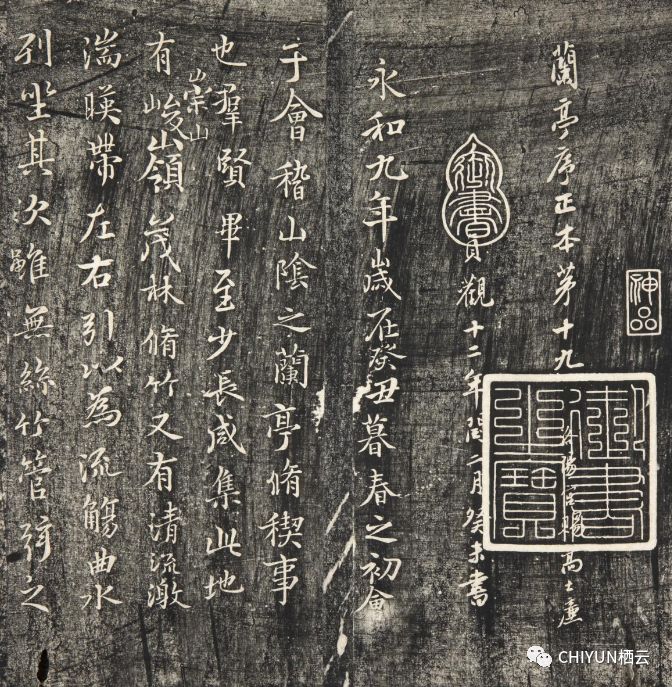 神品
蘭亭序正本苐十九 洛陽宮賜高士廉
御書之寶
御書
貞觀十二年閏二月癸未書
永和九年歲在癸丑暮春之初會
于會稽山陰之蘭亭脩稧事
也羣賢畢至少長咸集此地
有崇山峻嶺茂林脩竹又有清流激
湍暎帶左右引以為流觴曲水
列坐其次雖無絲竹管弦之
CHIYUN栖云